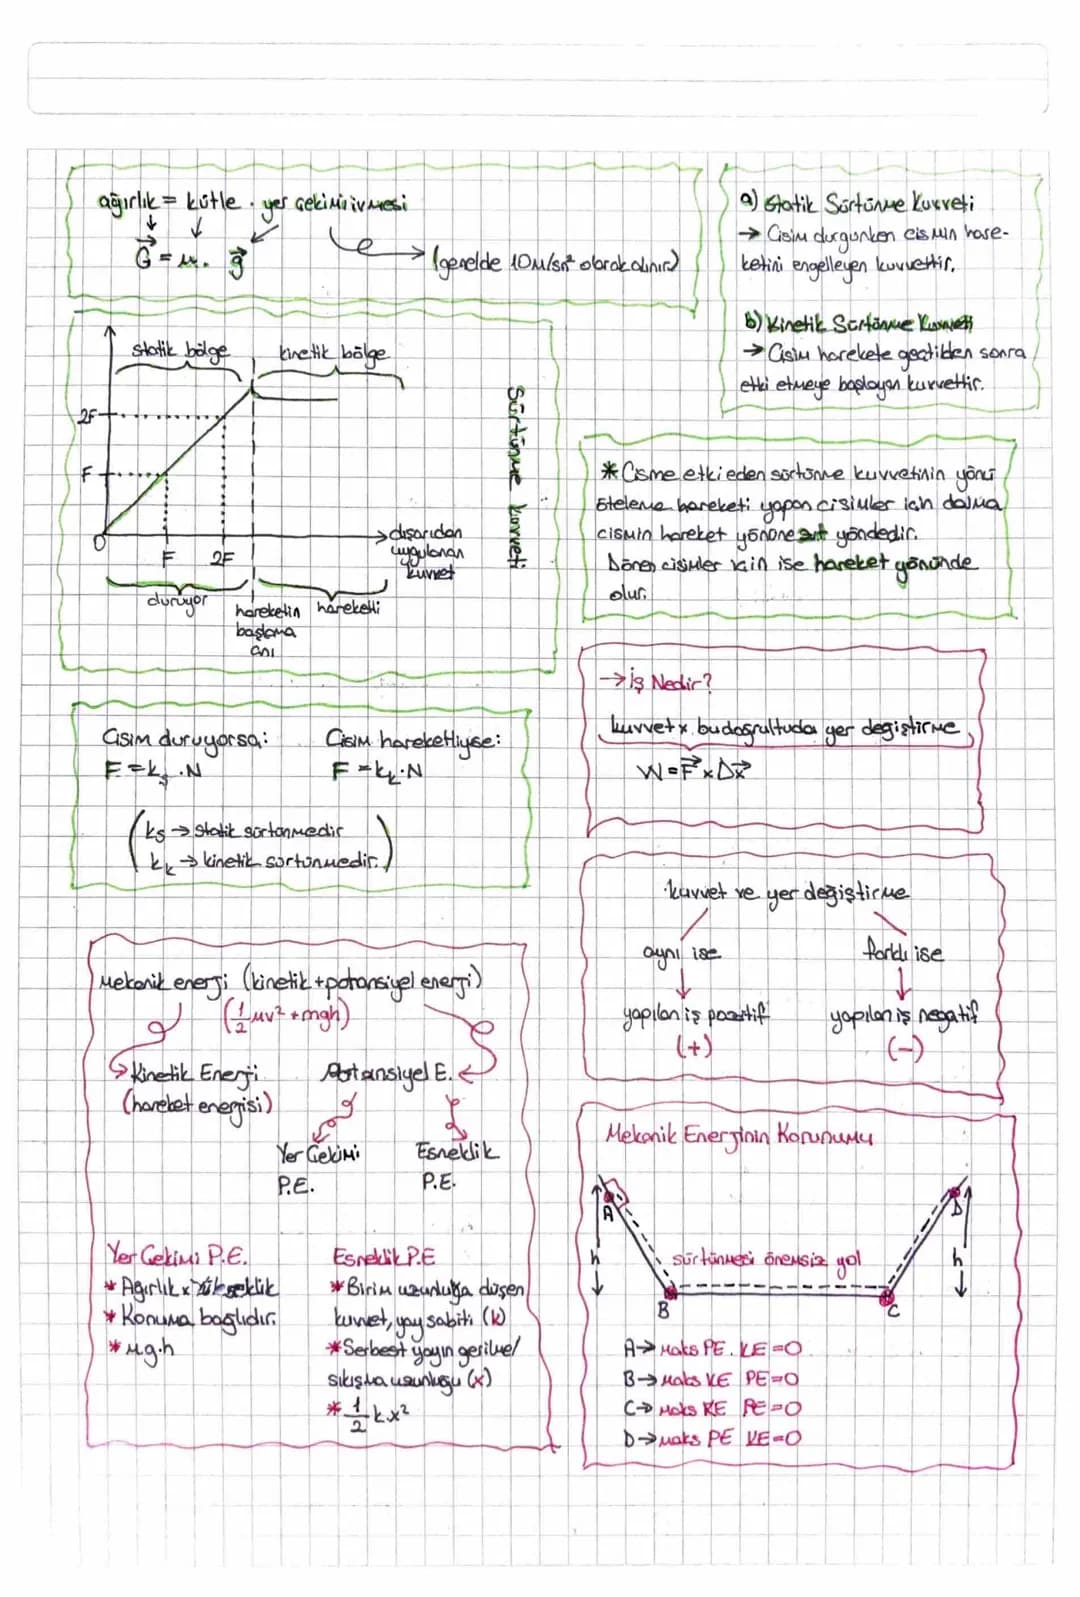 ağırlık = kütle . yer çekimi ivmesi
G = m . g
(genelde 10 m/sn² olarak alınır)
a) Statik Sürtünme Kuvveti
→ Cisim durgunken cismin hare-
ketini engelleyen kuvvettir.
b) Kinetik Sürtünme Kuvveti
→ Cisim harekete geçtikten sonra
etki etmeye başlayan kuvvettir.
statik bölge
kinetik bölge
2F
F
0
F
2F
→ dışarıdan
uygulanan
kuvvet
duruyor
hareketin
başlama
anı
hareketli
Sürtünme kuvveti
* Cisme etki eden sürtünme kuvvetinin yönü
öteleme hareketi yapan cisimler için daima
cismin hareket yönüne zıt yöndedir.
Dönen cisimler için ise hareket yönünde
olur.
→ İş Nedir?
kuvvet x bu doğrultuda yer değiştirme
W = F x Δx
Cisim duruyorsa:
F = ks . N
Cisim hareketliyse:
F = kk . N
ks → statik sürtünmedir
kk → kinetik sürtünmedir.
kuvvet ve yer değiştirme
aynı ise
yapılan iş pozitif
(+)
farklı ise
yapılan iş negatif
(-)
Mekanik enerji (kinetik + potansiyel enerji)
(1/2 mv² + mgh)
Kinetik Enerji
(hareket enerjisi)
Potansiyel E.
Yer Çekimi
P.E.
Esneklik
P.E.
Yer Çekimi P.E.
* Ağırlık x Yükseklik
* Konuma bağlıdır.
* m.g.h
Esneklik P.E
* Birim uzunluğa düşen
kuvvet, yay sabiti (k)
* Serbest yayın gerilme/
sıkışma uzunluğu (x)
* 1/2 k.x²
Mekanik Enerjinin Korunumu
A
D
h
sürtünmesi önemsiz yol
h
B
C
A → Maks PE . KE = 0
B → Maks KE PE = 0
C → Maks KE PE = 0
D → maks PE KE = 0